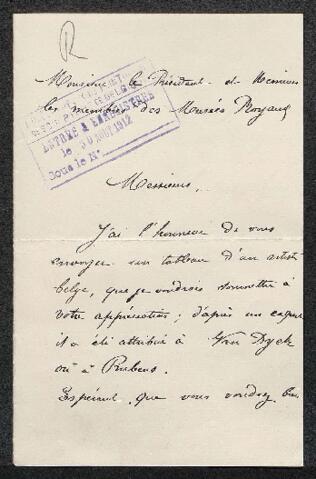 R
Monsieur le Président et Messieurs
les membres des Musées Royaux
ENTRÉE & ENREGISTRÉE
le 30 1912
Sous le N°
Messieurs,
J'ai l'honneur de vous
envoyer un tableau d'un artiste
belge, que je voudrais soumettre à
votre appréciation; d'après un
il a été attribué à Van Dyck
ou à Rubens.
Espérant que vous voudrez bien